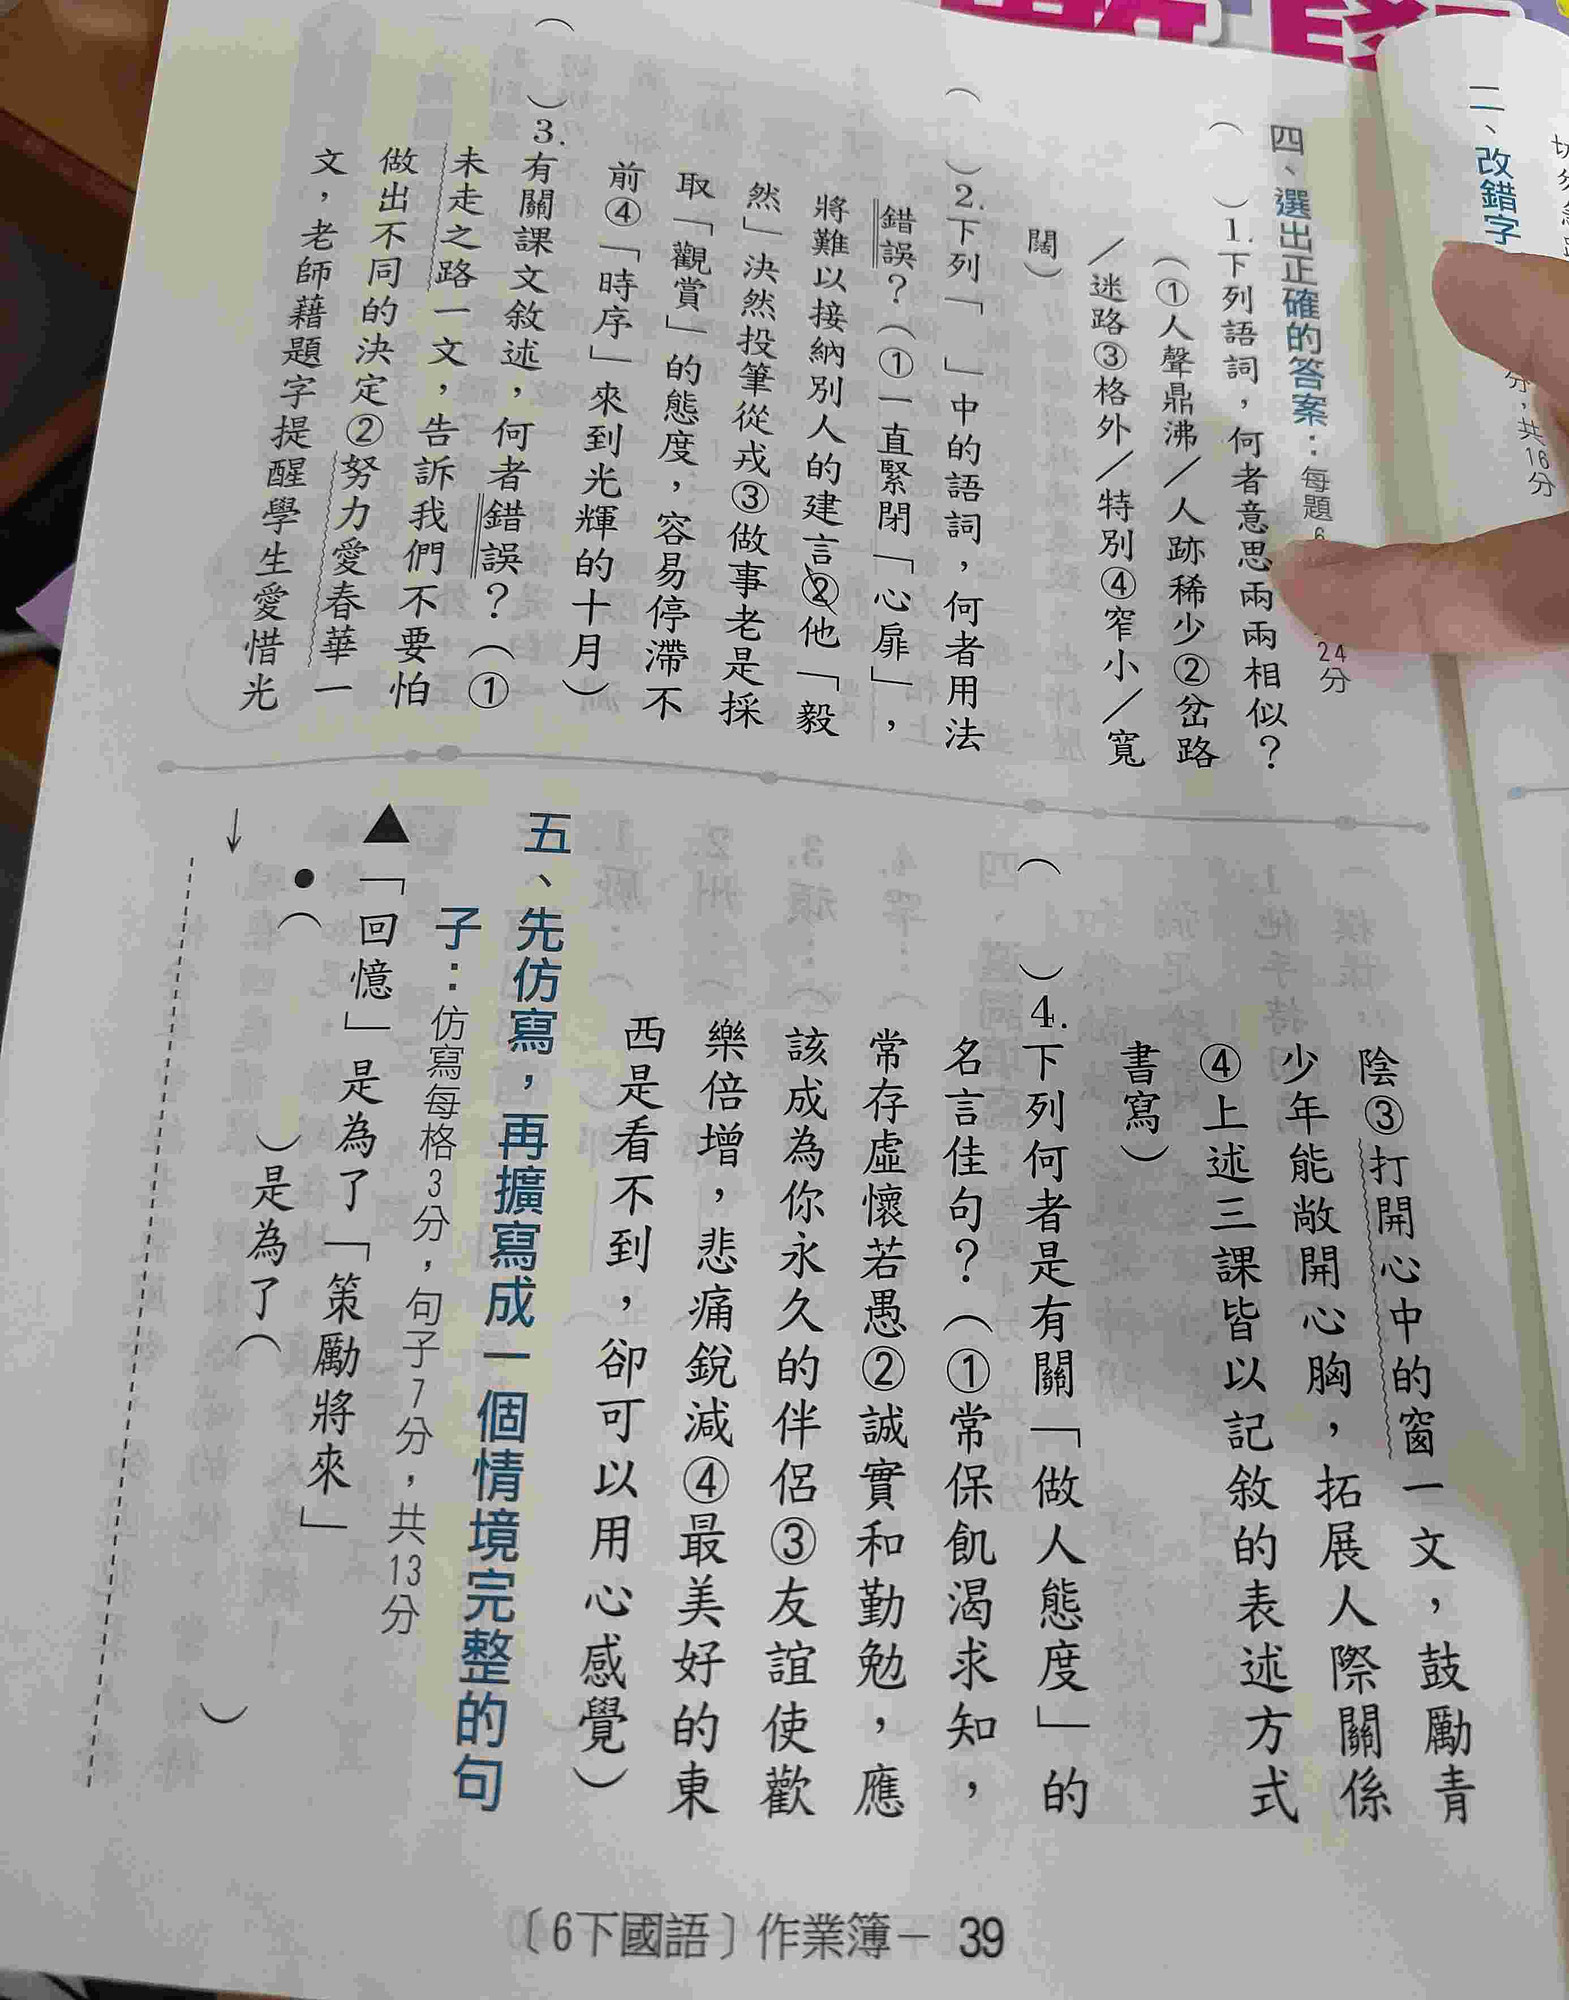 二、改錯字
分，共16分
四、選出正確的答案：每題6
24分
（　）1.下列語詞，何者意思兩兩相似？
（①人聲鼎沸／人跡稀少②岔路
／迷路③格外／特別④窄小／寬
闊）
（　）2.下列「　」中的語詞，何者用法
錯誤？（①一直緊閉「心扉」，
將難以接納別人的建言②他「毅
然」決然投筆從戎③做事老是採
取「觀賞」的態度，容易停滯不
前④「時序」來到光輝的十月）
（　）3.有關課文敘述，何者錯誤？（①
未走之路一文，告訴我們不要怕
做出不同的決定②努力愛春華一
文，老師藉題字提醒學生愛惜光
陰③打開心中的窗一文，鼓勵青
少年能敞開心胸，拓展人際關係
④上述三課皆以記敘的表述方式
書寫）
（　）4.下列何者是有關「做人態度」的
名言佳句？（①常保飢渴求知，
常存虛懷若愚②誠實和勤勉，應
該成為你永久的伴侶③友誼使歡
樂倍增，悲痛銳減④最美好的東
西是看不到，卻可以用心感覺）
五、先仿寫，再擴寫成一個情境完整的句
子：仿寫每格3分，句子7分，共13分
▲「回憶」是為了「策勵將來」
●（　）是為了（　）
↓
〔6下國語〕作業簿－39